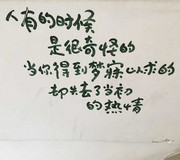 人有的时候
是很奇怪的
当你得到梦寐以求的
却失去了当初
的热情